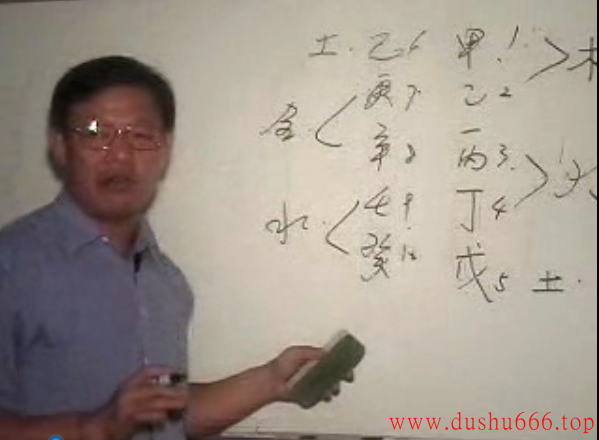 土. 己6 甲1 > 木
金 < 庚7 乙2
辛8 丙3 > 火
水 < 壬9 丁4
癸10 戊5 土.
www.dushu666.top